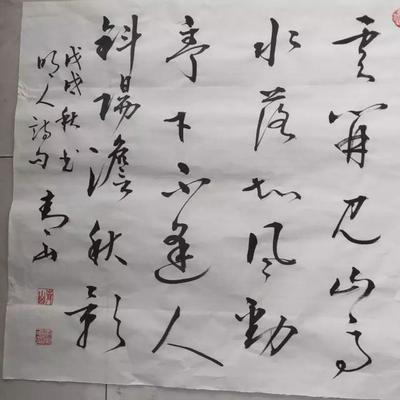 雲開見山高
木落知風勁
亭下不逢人
斜陽澹秋影
戊戌秋书
明人詩句 青山